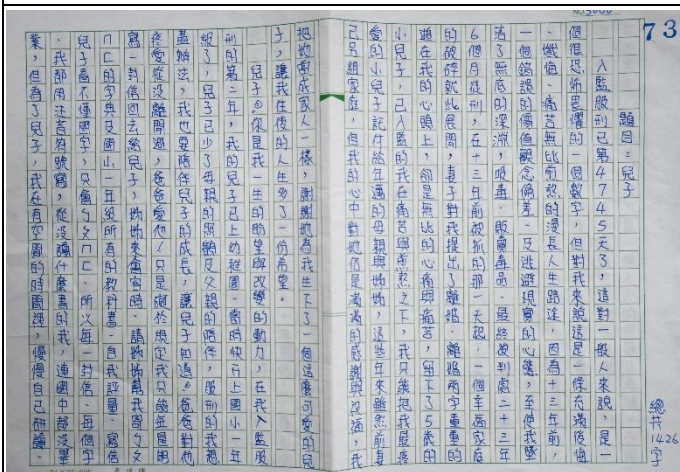 73
總共1426字
題目：兒子
入監服刑已第4745天了，這對一般人來說，是一
個很恐怖畏懼的一個數字，但對我來說這是一條充滿後悔
、懺悔、痛苦無比煎熬的漫長人生路途，因為十三年前
一個錯誤的價值觀念偏差、及逃避現實的心態，至使我墜
落了無底的深淵，吸毒、販賣毒品，最終被判處二十三年
6個月徒刑，在十三年前被抓的那一天起，一個幸福家庭
的破碎就此展開，妻子對我提出了離婚，離婚兩字重重的
搥在我的心頭上，卻是無比的心痛與痛苦，留下了5歲的
小兒子，已入監的我在痛苦與煎熬之下，我只能把我最疼
愛的小兒子託付給年邁的母親與姊姊，這些年來雖然前妻
已另組家庭，但我的心中對她仍是滿滿的感謝與祝福，我
把她當成家人一樣，謝謝她為我生下了一個這麼可愛的兒
子，讓我往後的人生多了一份希望。
兒子，你是我一生的盼望與改變的動力，在我入監服
刑的第二年，我的兒子已上幼稚園，當時快升上國小一年
級了，兒子已少了母親的照顧及父親的陪伴，服刑的我想
盡辦法，我也要陪伴兒子的成長，讓兒子知道，爸爸對他
疼愛從沒離開過，爸爸愛他，只是礙於規定我只能年是用
寫一封信回去給兒子，姊姊來會客時，請姊姊幫我寄ㄅㄆ
ㄇㄈ的字典及國小一年級所有的教科書、自我評量，寫信
兒子看不懂國字，只會ㄅㄆㄇㄈ，所以每一封信、每個字
，我都用注音符號寫，從沒讀什麼書的我，連國中都沒畢
業，但為了兒子，我在有空閒的時間裡，慢慢自己研讀、